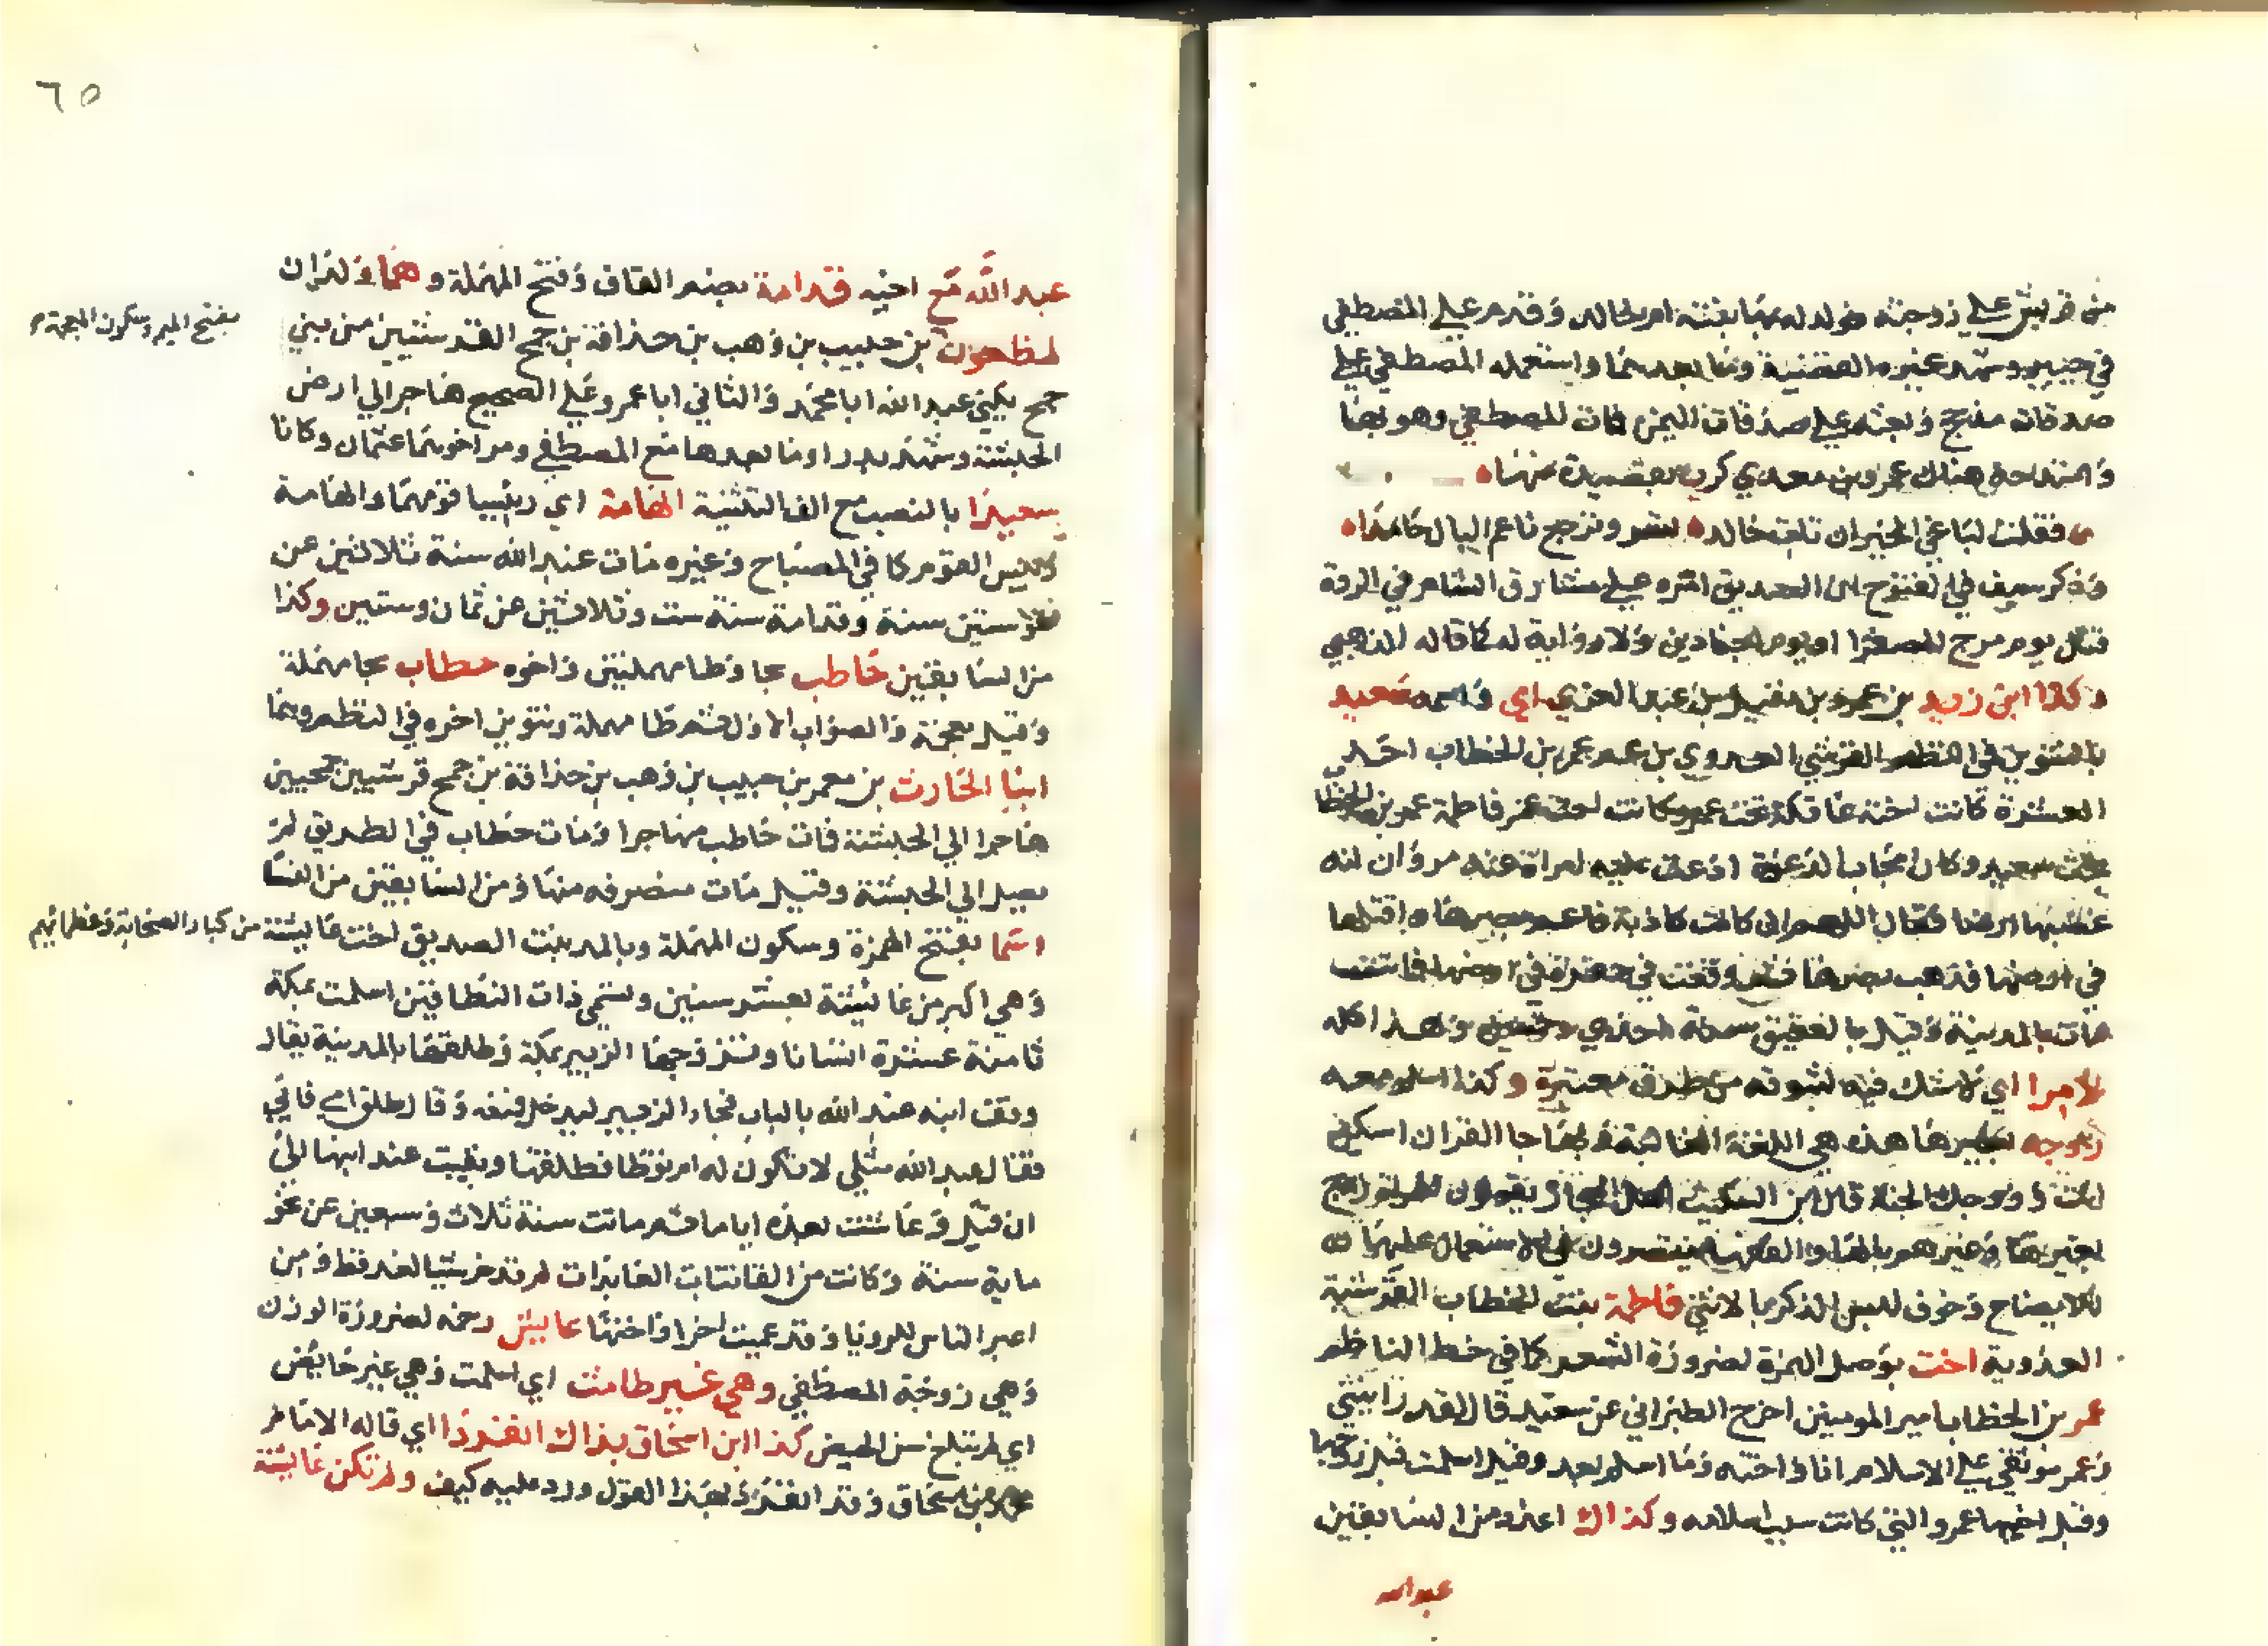 من قريش على زوجته فولد له بها بنته ام خالد وقدم على المصطفى
في خيبر وشهد عمرة القضية وما بعدهما واستعمله المصطفى على
صدقات مذحج وبعثه على صدقات اليمن فمات المصطفى وهو بها
وامتدحه هناك عمرو بن معدي كرب بقصيدة منها
فقلت لباغي الخير ان تلق خالدا تسر وترجع ناعم البال حامدا
وذكر سيف في الفتوح ان الصديق امره على مشارق الشام في الردة
قتل يوم مرج الصفرا او يوم اجنادين ولا رواية له كما قاله الذهبي
وكذا ابن زيد بن عمرو بن نفيل بن عبد العزي اي واسمه سعيد
بالتنوين في النظم القرشي العدوي بن عم عمر بن الخطاب احد
العشرة كانت اخته عاتكة تحت عمر وكانت اخت عمر فاطمة
تحت سعيد وكان مجاب الدعوة ادعت عليه امراة عند مروان انه
غصبها ارضا فقال اللهم ان كانت كاذبة فاعم بصرها واقتلها
في ارضها فذهب بصرها ووقعت في حفرة في ارضها فماتت
مات بالمدينة وقيل بالعقيق سنة احدي وخمسين وهذا كله
لا مرا اي لا شك فيه لثبوته من طرق معتبرة وكذا اسلم معه
زوجه بغير ها هذه هي اللغة الغالبة وبها جا القران اسكن
انت وزوجك الجنة قال ابن السكيت اهل الحجاز يقولون للمراة زوج
بغير ها وغيرهم بالها والفقها يقتصرون في الاستعمال عليها
للايضاح وخوف لبس الذكر بالانثي فاطمة بنت الخطاب القرشية
العدوية اخت بوصل الهمزة لضرورة الشعر كما في خط الناظم
عمر بن الخطاب امير المومنين اخرج الطبراني عن سعيد قال لقد رايتني
وعمر موثقي على الاسلام انا واخته وما اسلم بعد وقيل اسلمت قبل زوجها
وقبل اخيها عمر والتي كانت سبب اسلامه وكذاك اعدد من السابقين
عبد الله
٦٥
عبد الله مع اخيه قدامة بضم القاف وفتح المهملة وهما ولدان
لمظعون بن حبيب بن وهب بن حذافة بن جمح القرشيين من بني
بفتح الميم وسكون المعجمة
جمح يكني عبد الله ابا محمد والثاني ابا عمر وعلى الصحيح هاجرا الي ارض
الحبشة وشهد بدرا وما بعدها مع المصطفى ومر اخوهما عثمان وكانا
سعيدا بالنصب مع الف التثنية الهامة اي رييسيا قومهما والهامة
رييس القوم كما في المصباح وغيره مات عبد الله سنة ثلاثين عن
نحو ستين سنة وقدامة سنة ست وثلاثين عن ثمان وستين وكذا
من السابقين حاطب بحا وطا مهملتين واخوه حطاب بحا مهملة
وقيل معجمة والصواب الاول ثم طا مهملة وتنوين اخره في النظم وهما
ابنا الحارث بن معمر بن حبيب بن وهب بن حذافة بن جمح قرشيين جمحيين
هاجرا الي الحبشة فمات حاطب مهاجرا ومات حطاب في الطريق لم
يصل الي الحبشة وقيل مات منصرفه منها ومن السابقين من النسا
اسما بفتح الهمزة وسكون المهملة وبالمد بنت الصديق اخت عايشة
من كبار الصحابة وعظمائهم
وهي اكبر من عايشة بعشر سنين وتسمي ذات النطاقين اسلمت بمكة
ثامنة عشرة انسانا وتزوجها الزبير بمكة وطلقها بالمدينة يقال
وقف ابنه عبد الله بالباب فجاء الزبير ليدخل فمنعه وقال طلق امي فابي
فقال عبد الله مثلي لا تكون له ام توطا فطلقها وبقيت عند ابنها الي
ان قتل وعاشت بعده اياما ثم ماتت سنة ثلاث وسبعين عن نحو
ماية سنة وكانت من القانتات العابدات لم تدخر شيا لغد قط ومن
اعبر الناس للرويا وقد عميت اخرا واختها عايش رخمه لضرورة الوزن
وهي زوجة المصطفى وهي غير طامث اي اسلمت وهي غير حايض
اي لم تبلغ سن الحيض كذا ابن اسحاق بذاك انفردا اي قاله الامام
محمد بن اسحاق وقد انفرد بهذا القول ورد عليه كيف ولم تكن عايشة